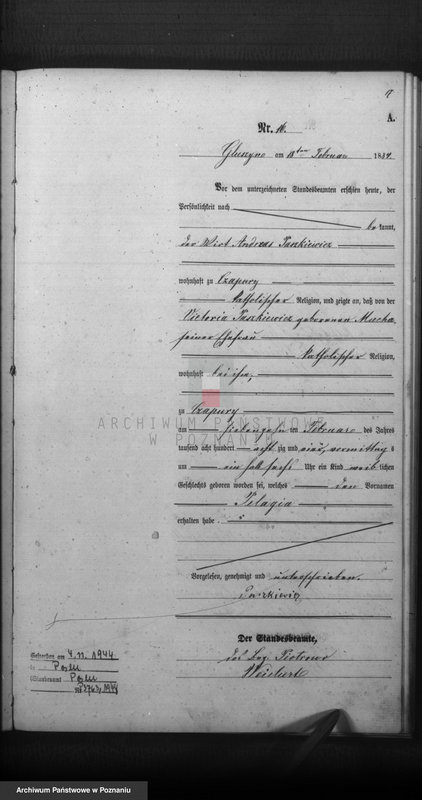 A.
Nr. 10.
Gluszyno am 18ten Februar 1884.
Vor dem unterzeichneten Standesbeamten erschien heute, der
Persönlichkeit nach
be kannt,
der Wirt Andreas Paszkiewicz
wohnhaft zu Czapury
katholischer Religion, und zeigte an, daß von der
Victoria Paszkiewicz geborenen Mucha
seiner Ehefrau
katholischer Religion,
wohnhaft bei ihm,
zu Czapury
am siebenzehn ten Februar des Jahres
tausend acht hundert acht zig und vier, vormittag s
um ein halb sechs Uhr ein Kind weib lichen
Geschlechts geboren worden sei, welches den Vornamen
Pelagia
erhalten habe.
Vorgelesen, genehmigt und unterschrieben.
Paszkiewicz
Der Standesbeamte,
Gestorben am 4.11.1944
in Posen
Standesamt Posen
3763/1944
ARCHIWUM PAŃSTWOWE
W POZNANIU
Archiwum Państwowe w Poznaniu